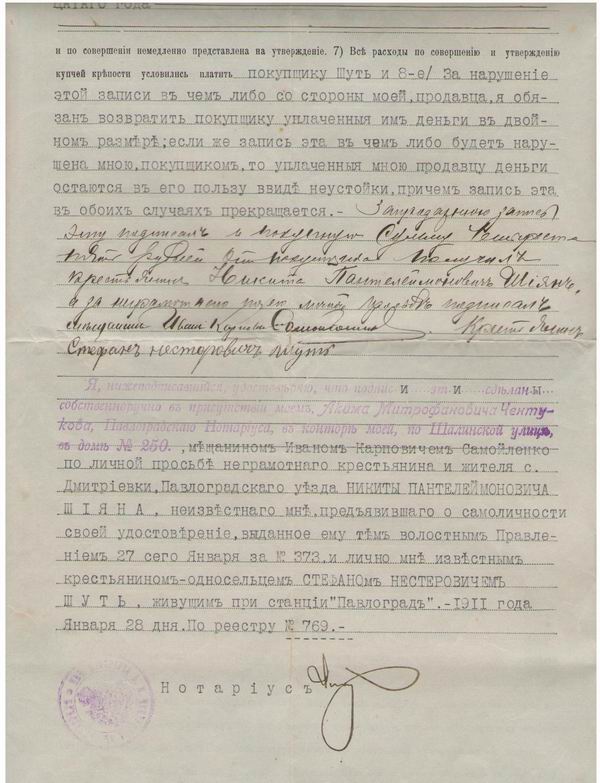 и по совершеніи немедленно представлена на утвержденіе. 7) Всѣ расходы по совершенію и утвержденію
купчей крѣпости условились платить покупщику Шуть и 8-е/ За нарушеніе
этой записи въ чемъ либо со стороны моей,продавца,я обя-
занъ возвратить покупщику уплаченныя имъ деньги въ двой-
номъ размѣрѣ;если же запись эта въ чемъ либо будетъ нару-
шена мною,покупщикомъ,то уплаченныя мною продавцу деньги
остаются въ его пользу ввидѣ неустойки,причемъ запись эта
въ обоихъ случаяхъ прекращается.- Запродажную запись
эту подписалъ и получилъ
Никита Пантелеймоновичъ Шіянъ,
а за неграмотного подписалъ
мѣщанинъ Иванъ Карповъ Самойленко. Крестьянинъ
Стефанъ Несторовичъ Шуть
Я, нижеподписавшійся, удостовѣряю, что подписи эти сдѣланы
собственноручно въ присутствіи моемъ, Акима Митрофановича Ченту-
кова, Павлоградскаго Нотаріуса, въ конторѣ моей, по Шалинской улицѣ,
въ домѣ № 250. ,мѣщаниномъ Иваномъ Карповичемъ Самойленко
по личной просьбѣ неграмотнаго крестьянина и жителя с.
Дмитріевки,Павлоградскаго уѣзда НИКИТЫ ПАНТЕЛЕЙМОНОВИЧА
ШІЯНА, неизвѣстнаго мнѣ,предъявившаго о самоличности
своей удостовѣреніе,выданное ему тѣмъ волостнымъ Правле-
ніемъ 27 сего Января за № 373,и лично мнѣ извѣстнымъ
крестьяниномъ-односельцемъ СТЕФАНОМЪ НЕСТЕРОВИЧЕМЪ
ШУТЬ, живущимъ при станціи"Павлоградъ".-1911 года
Января 28 дня.По реестру № 769.-
Нотаріусъ